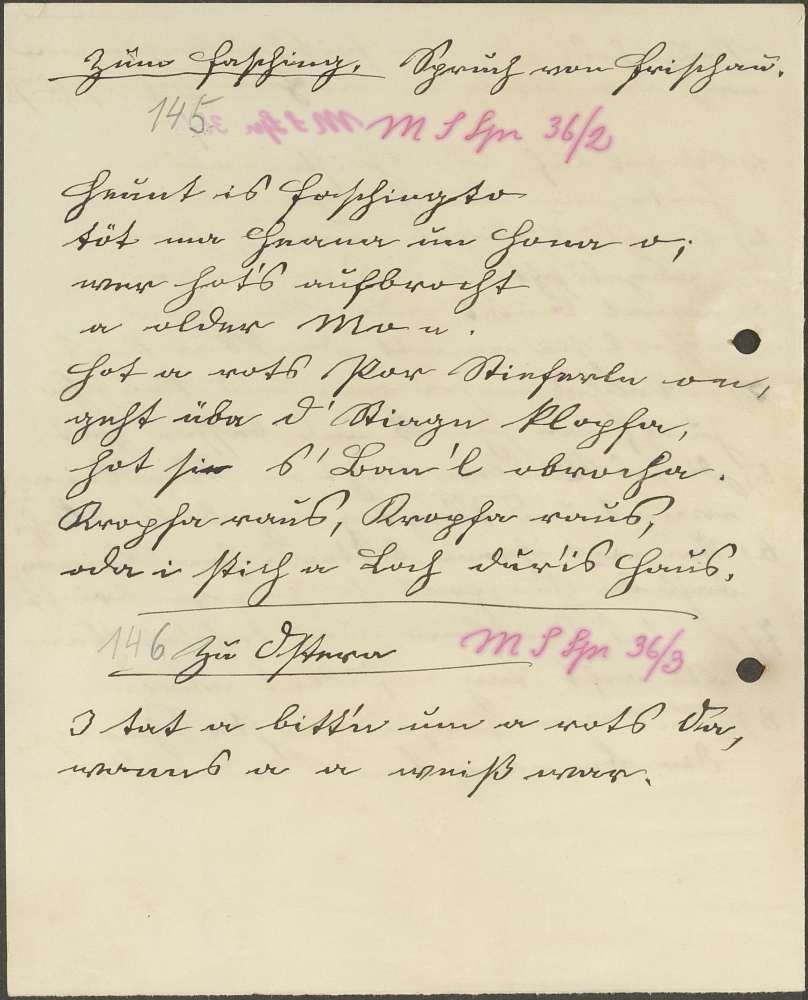 Zum Fasching. Spruch von Frischau.
145 M S Spr 36/2
Heunt is Faschingto
töt ma Heana un Hona o;
wer hot's aufbrocht
a older Mon.
Hot a rots Por Stieferle on,
geht üba d' Stiagn klopfa,
hot sie s' Ban'l obrocha.
Kropfa raus, Kropfa raus,
oda i stich a Loch dur'is Haus.
146 Zu Ostern M S Spr 36/3
I tat a bitt'n um a rots Oa,
wanns a a weiß war.